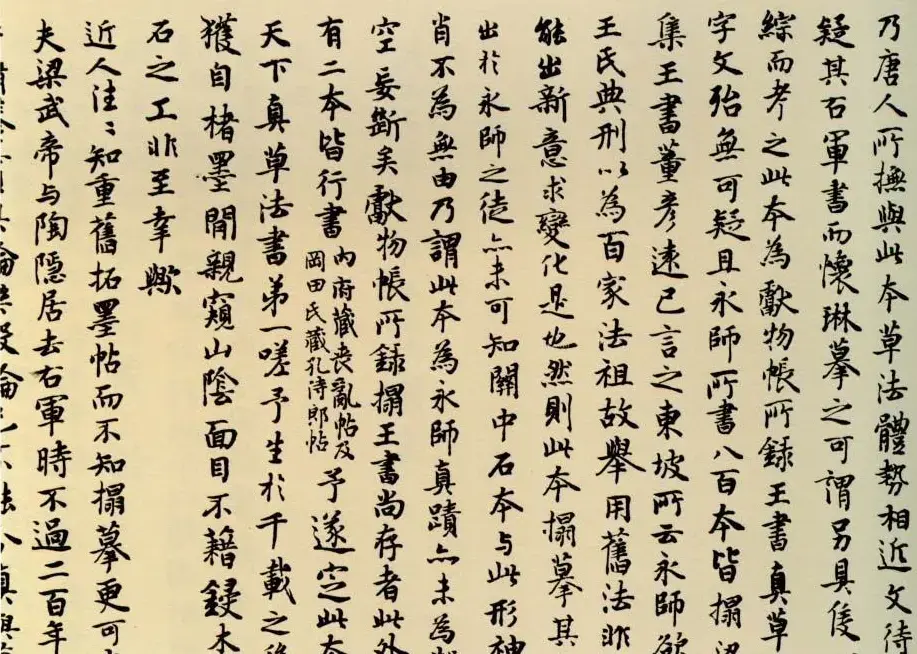 乃唐人所撫與此本草法體勢相近文待
疑其右軍書而懷琳摹之可謂另具隻
綜而考之此本為獻物帳所錄王書真草
字文殆無可疑且永師所書八百本皆搨
集王書董彥遠已言之東坡所云永師欲
王氏典刑以為百家法祖故舉用舊法非
能出新意求變化是也然則此本搨摹其
出於永師之徒亦未可知關中石本與此形神
肖不為無由乃謂此本為永師真蹟亦未為
空妄斷矣獻物帳所錄搨王書尚存者此外
有二本皆行書
內府藏喪亂帖及
岡田氏藏孔侍郎帖
予遂定此本
天下真草法書第一嗟予生於千載之後
獲自楮墨間親窺山陰面目不藉鋟木
石之工非至幸歟
近人往〻知重舊拓墨帖而不知搨摹更可
夫梁武帝与陶隱居去右軍時不過二百年